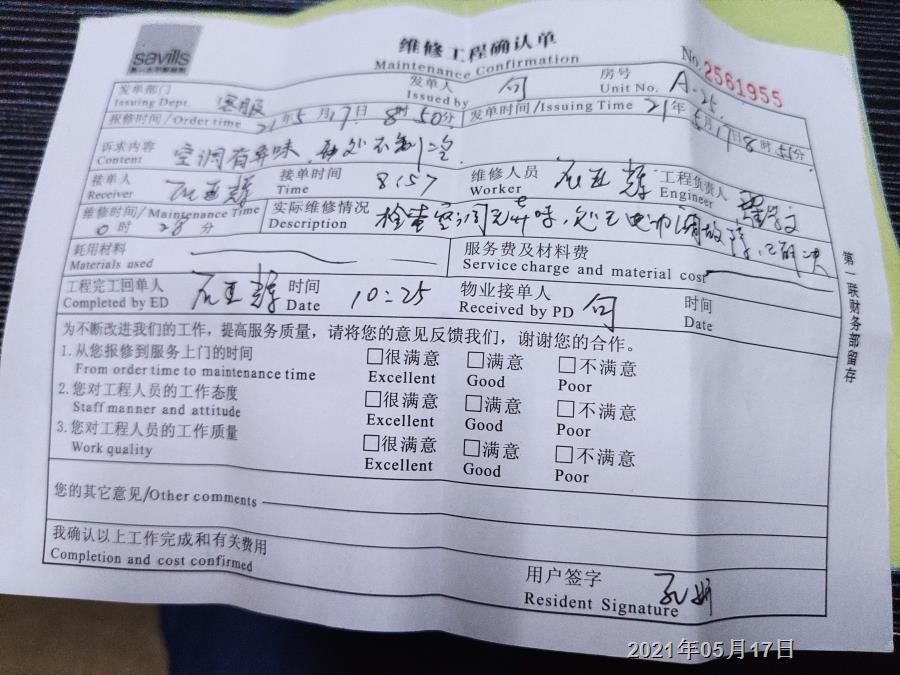 savills
维修工程确认单
Maintenance Confirmation
No. 2561955
发单部门 客服 发单人 房号 A-25
Issuing Dept. Issued by Unit No.
报修时间/Order time 21年5月17日8时50分 发单时间/Issuing Time 21年5月17日8时55分
诉求内容 空调有异味,
Content
接单人 接单时间 8:57 维修人员 工程负责人
Receiver Time Worker Engineer
维修时间/Maintenance Time 实际维修情况 检查空调无异味,
0时28分 Description 已解决
耗用材料 服务费及材料费
Materials used Service charge and material cost
工程完工回单人 时间 10:25 物业接单人 时间
Completed by ED Date Received by PD Date
为不断改进我们的工作,提高服务质量,请将您的意见反馈我们,谢谢您的合作。
1.从您报修到服务上门的时间 □很满意 □满意 □不满意
From order time to maintenance time Excellent Good Poor
2.您对工程人员的工作态度 □很满意 □满意 □不满意
Staff manner and attitude Excellent Good Poor
3.您对工程人员的工作质量 □很满意 □满意 □不满意
Work quality Excellent Good Poor
您的其它意见/Other comments
我确认以上工作完成和有关费用
Completion and cost confirmed
用户签字
Resident Signature
第一联财务部留存
2021年05月17日